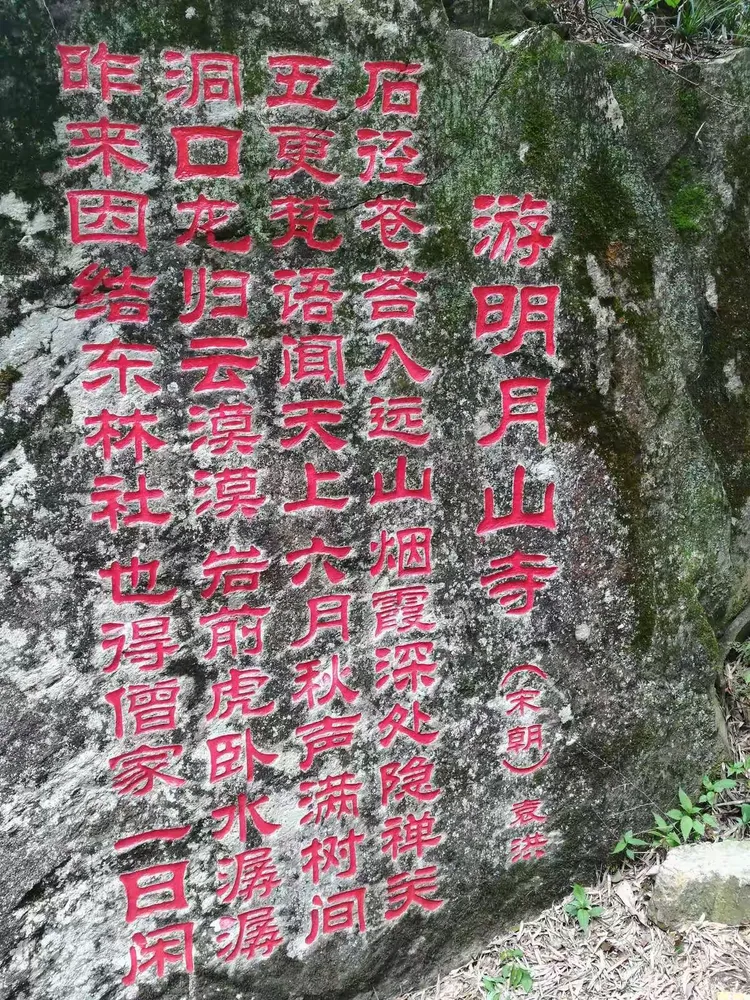 游明月山寺
（宋朝）袁洪
石径苍苔入远山烟霞深处隐禅关
五更梵语闻天上六月秋声满树间
洞口龙归云漠漠岩前虎卧水潺潺
昨来因结东林社也得僧家一日闲